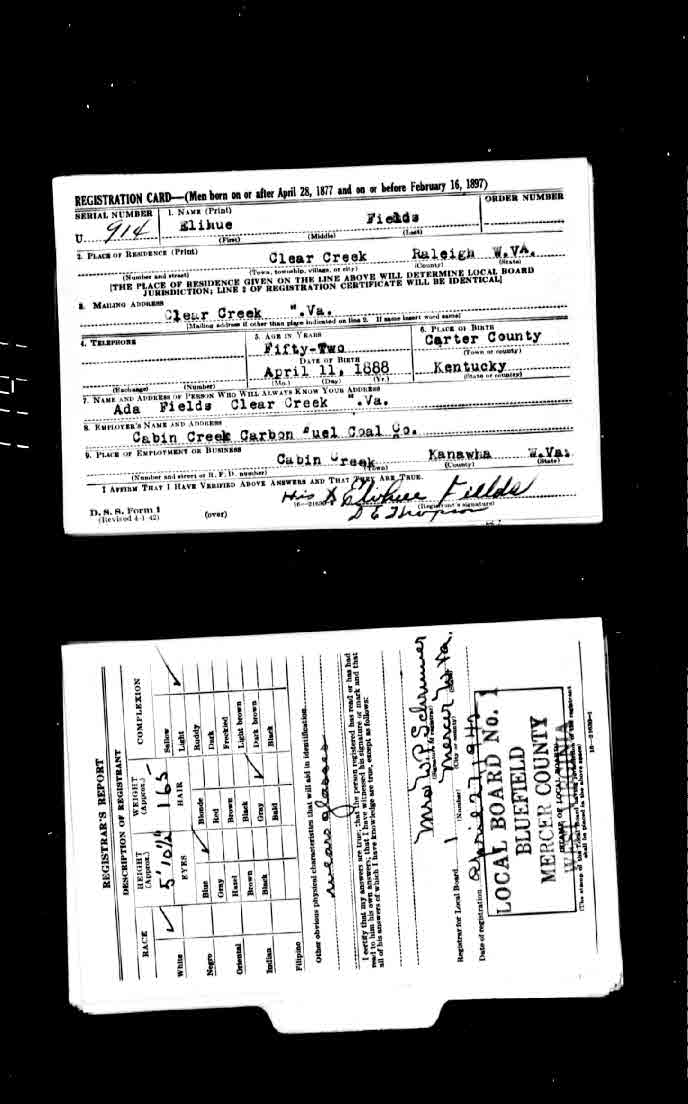 REGISTRATION CARD—(Men born on or after April 28, 1877 and on or before February 16, 1897)
SERIAL NUMBER
1. NAME (Print)
ORDER NUMBER
U. 914
Elihue Fields
(First) (Middle) (Last)
2. PLACE OF RESIDENCE (Print)
Clear Creek Raleigh W.VA.
(Number and street) (Town, township, village, or city) (County) (State)
[THE PLACE OF RESIDENCE GIVEN ON THE LINE ABOVE WILL DETERMINE LOCAL BOARD
JURISDICTION; LINE 2 OF REGISTRATION CERTIFICATE WILL BE IDENTICAL]
3. MAILING ADDRESS
Clear Creek W.Va.
[Mailing address if other than place indicated on line 2. If same insert word same]
4. TELEPHONE
5. AGE IN YEARS
6. PLACE OF BIRTH
Fifty-Two
Carter County
DATE OF BIRTH
(Town or county)
April 11, 1888
Kentucky
(Exchange) (Number) (Mo.) (Day) (Yr.) (State or country)
7. NAME AND ADDRESS OF PERSON WHO WILL ALWAYS KNOW YOUR ADDRESS
Ada Fields Clear Creek W.Va.
8. EMPLOYER'S NAME AND ADDRESS
Cabin Creek Carbon Fuel Coal Co.
9. PLACE OF EMPLOYMENT OR BUSINESS
Cabin Creek Kanawha W.Va.
(Number and street or R. F. D. number) (Town) (County) (State)
I AFFIRM THAT I HAVE VERIFIED ABOVE ANSWERS AND THAT THEY ARE TRUE.
His X Elihue Fields
D. S. S. Form 1
(Revised 4-1-42)
(over)
(Registrant's signature)
D E Thompson
REGISTRAR'S REPORT
DESCRIPTION OF REGISTRANT
RACE
HEIGHT (Approx.)
WEIGHT (Approx.)
COMPLEXION
5' 10½" 165
EYES HAIR
White
Negro
Oriental
Indian
Filipino
Blue
Gray
Hazel
Brown
Black
Blonde
Red
Brown
Black
Gray
Bald
Sallow
Light
Ruddy
Dark
Freckled
Light brown
Dark brown
Black
Other obvious physical characteristics that will aid in identification
wears glasses
I certify that my answers are true; that the person registered has read or has had
read to him his own answers; that I have witnessed his signature or mark and that
all of his answers of which I have knowledge are true, except as follows:
Mrs W P
(Signature of registrar)
Registrar for Local Board 1 Mercer W Va.
(Number) (City or county) (State)
Date of registration April 27 1942
LOCAL BOARD No. 1
BLUEFIELD
MERCER COUNTY
WEST VIRGINIA
(STAMP OF LOCAL BOARD)
(The stamp of the Local Board having jurisdiction of the registrant
shall be placed in the above space)